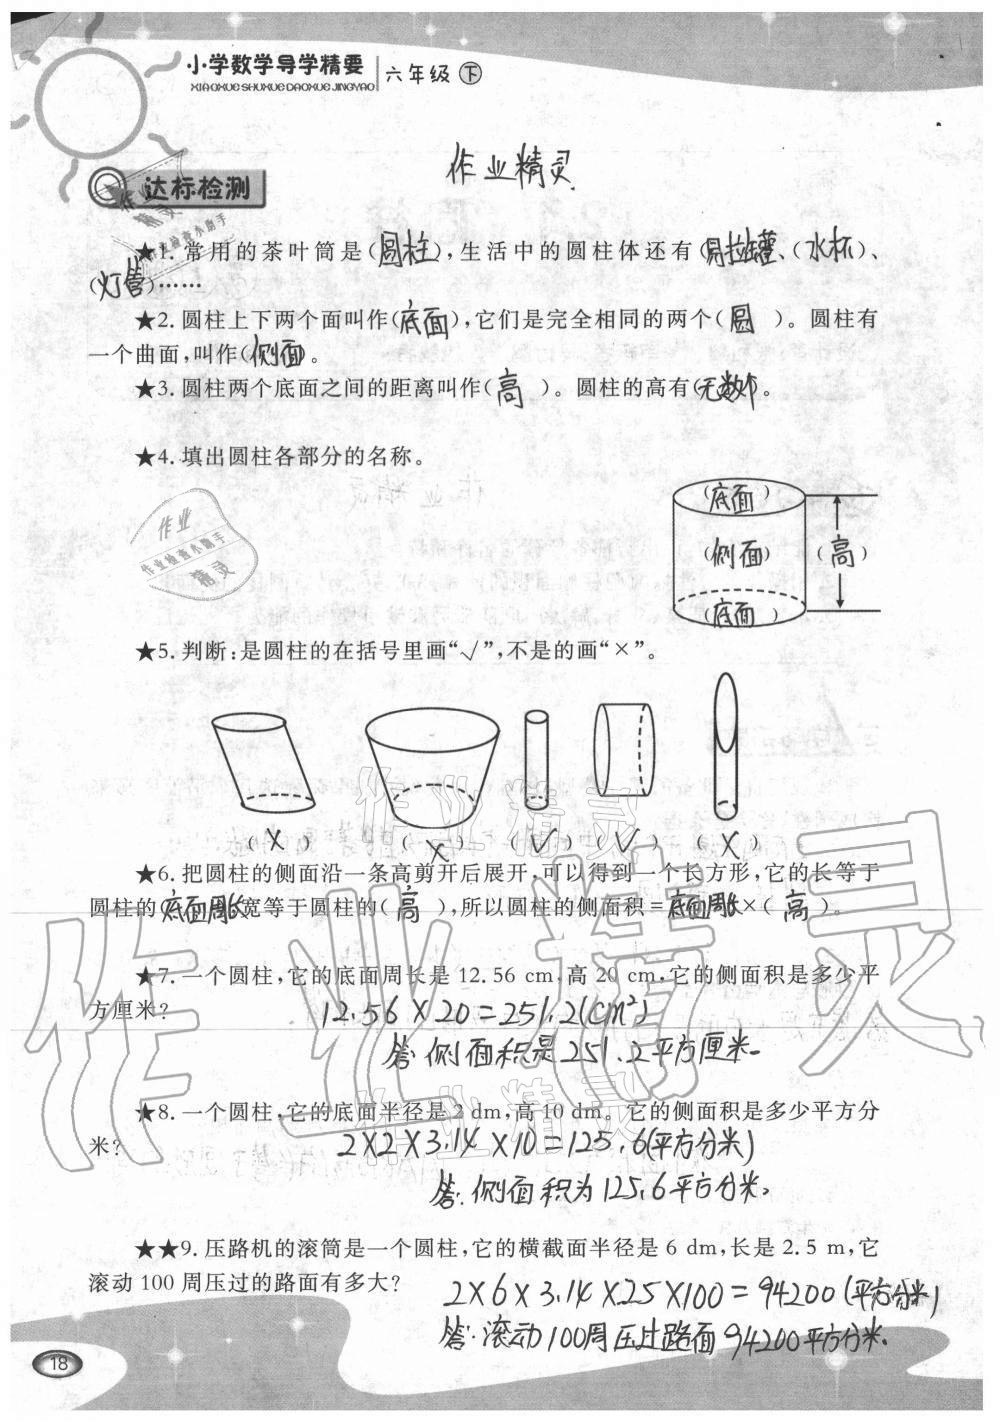 小学数学导学精要
XIAOXUE SHUXUE DAOXUE JINGYAO
六年级 下
作业精灵
达标检测
★1. 常用的茶叶筒是(圆柱),生活中的圆柱体还有(易拉罐、(水杯)、
(灯管)……
★2. 圆柱上下两个面叫作(底面),它们是完全相同的两个(圆)。圆柱有
一个曲面,叫作(侧面)。
★3. 圆柱两个底面之间的距离叫作(高)。圆柱的高有(无数个。
★4. 填出圆柱各部分的名称。
(底面)
(侧面)
(高)
(底面)
作业
作业检查小助手
精灵
★5. 判断:是圆柱的在括号里画“√”,不是的画“×”。
(×) (×) (√) (√) (×)
★6. 把圆柱的侧面沿一条高剪开后展开,可以得到一个长方形,它的长等于
圆柱的(底面周长宽等于圆柱的(高),所以圆柱的侧面积=底面周长×(高)。
★7. 一个圆柱,它的底面周长是 12.56 cm,高 20 cm,它的侧面积是多少平
方厘米?
12.56×20=251.2(cm²)
答:侧面积是251.2平方厘米.
★8. 一个圆柱,它的底面半径是 2 dm,高 10 dm。它的侧面积是多少平方分
米?
2×2×3.14×10=125.6(平方分米)
答:侧面积为125.6平方分米。
★★9. 压路机的滚筒是一个圆柱,它的横截面半径是 6 dm,长是 2.5 m,它
滚动 100 周压过的路面有多大?
2×6×3.14×25×100=94200(平方分米)
答:滚动100周压过路面94200平方分米.
18
作业精灵
作业精灵
作业精灵